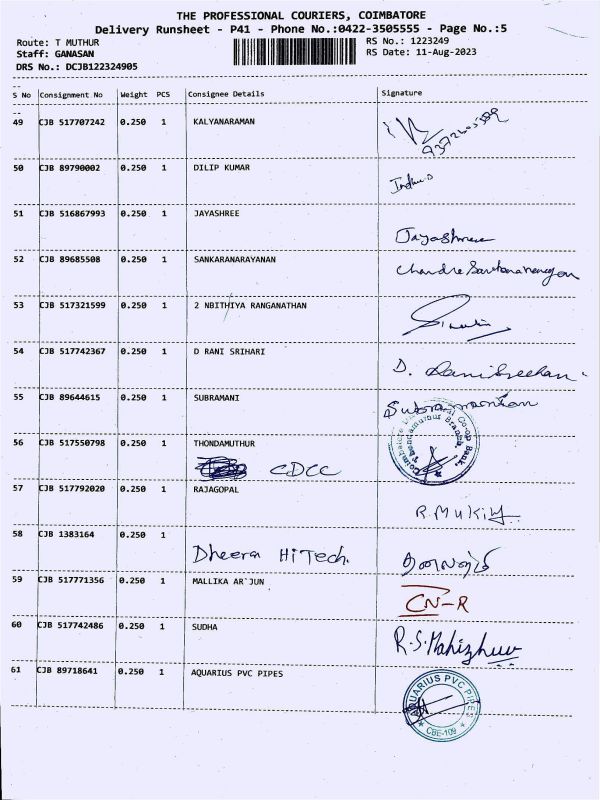 THE PROFESSIONAL COURIERS, COIMBATORE
Delivery Runsheet - P41 - Phone No.:0422-3505555 - Page No.:5
Route: T MUTHUR RS No.: 1223249
Staff: GANASAN RS Date: 11-Aug-2023
DRS No.: DCJB122324905
--
S No Consignment No Weight PCS Consignee Details Signature
--
49 CJB 517707242 0.250 1 KALYANARAMAN
50 CJB 89790002 0.250 1 DILIP KUMAR
51 CJB 516867993 0.250 1 JAYASHREE
Jayashree
52 CJB 89685508 0.250 1 SANKARANARAYANAN
53 CJB 517321599 0.250 1 2 NBITHIYA RANGANATHAN
54 CJB 517742367 0.250 1 D RANI SRIHARI
D.
55 CJB 89644615 0.250 1 SUBRAMANI
56 CJB 517550798 0.250 1 THONDAMUTHUR
CDCC
57 CJB 517792020 0.250 1 RAJAGOPAL
58 CJB 1383164 0.250 1
Dheeran HiTech.
59 CJB 517771356 0.250 1 MALLIKA AR`JUN
CN-R
60 CJB 517742486 0.250 1 SUDHA
R.S.Mahizhuu
61 CJB 89718641 0.250 1 AQUARIUS PVC PIPES
AQUARIUS PVC PIPES
CBE-109